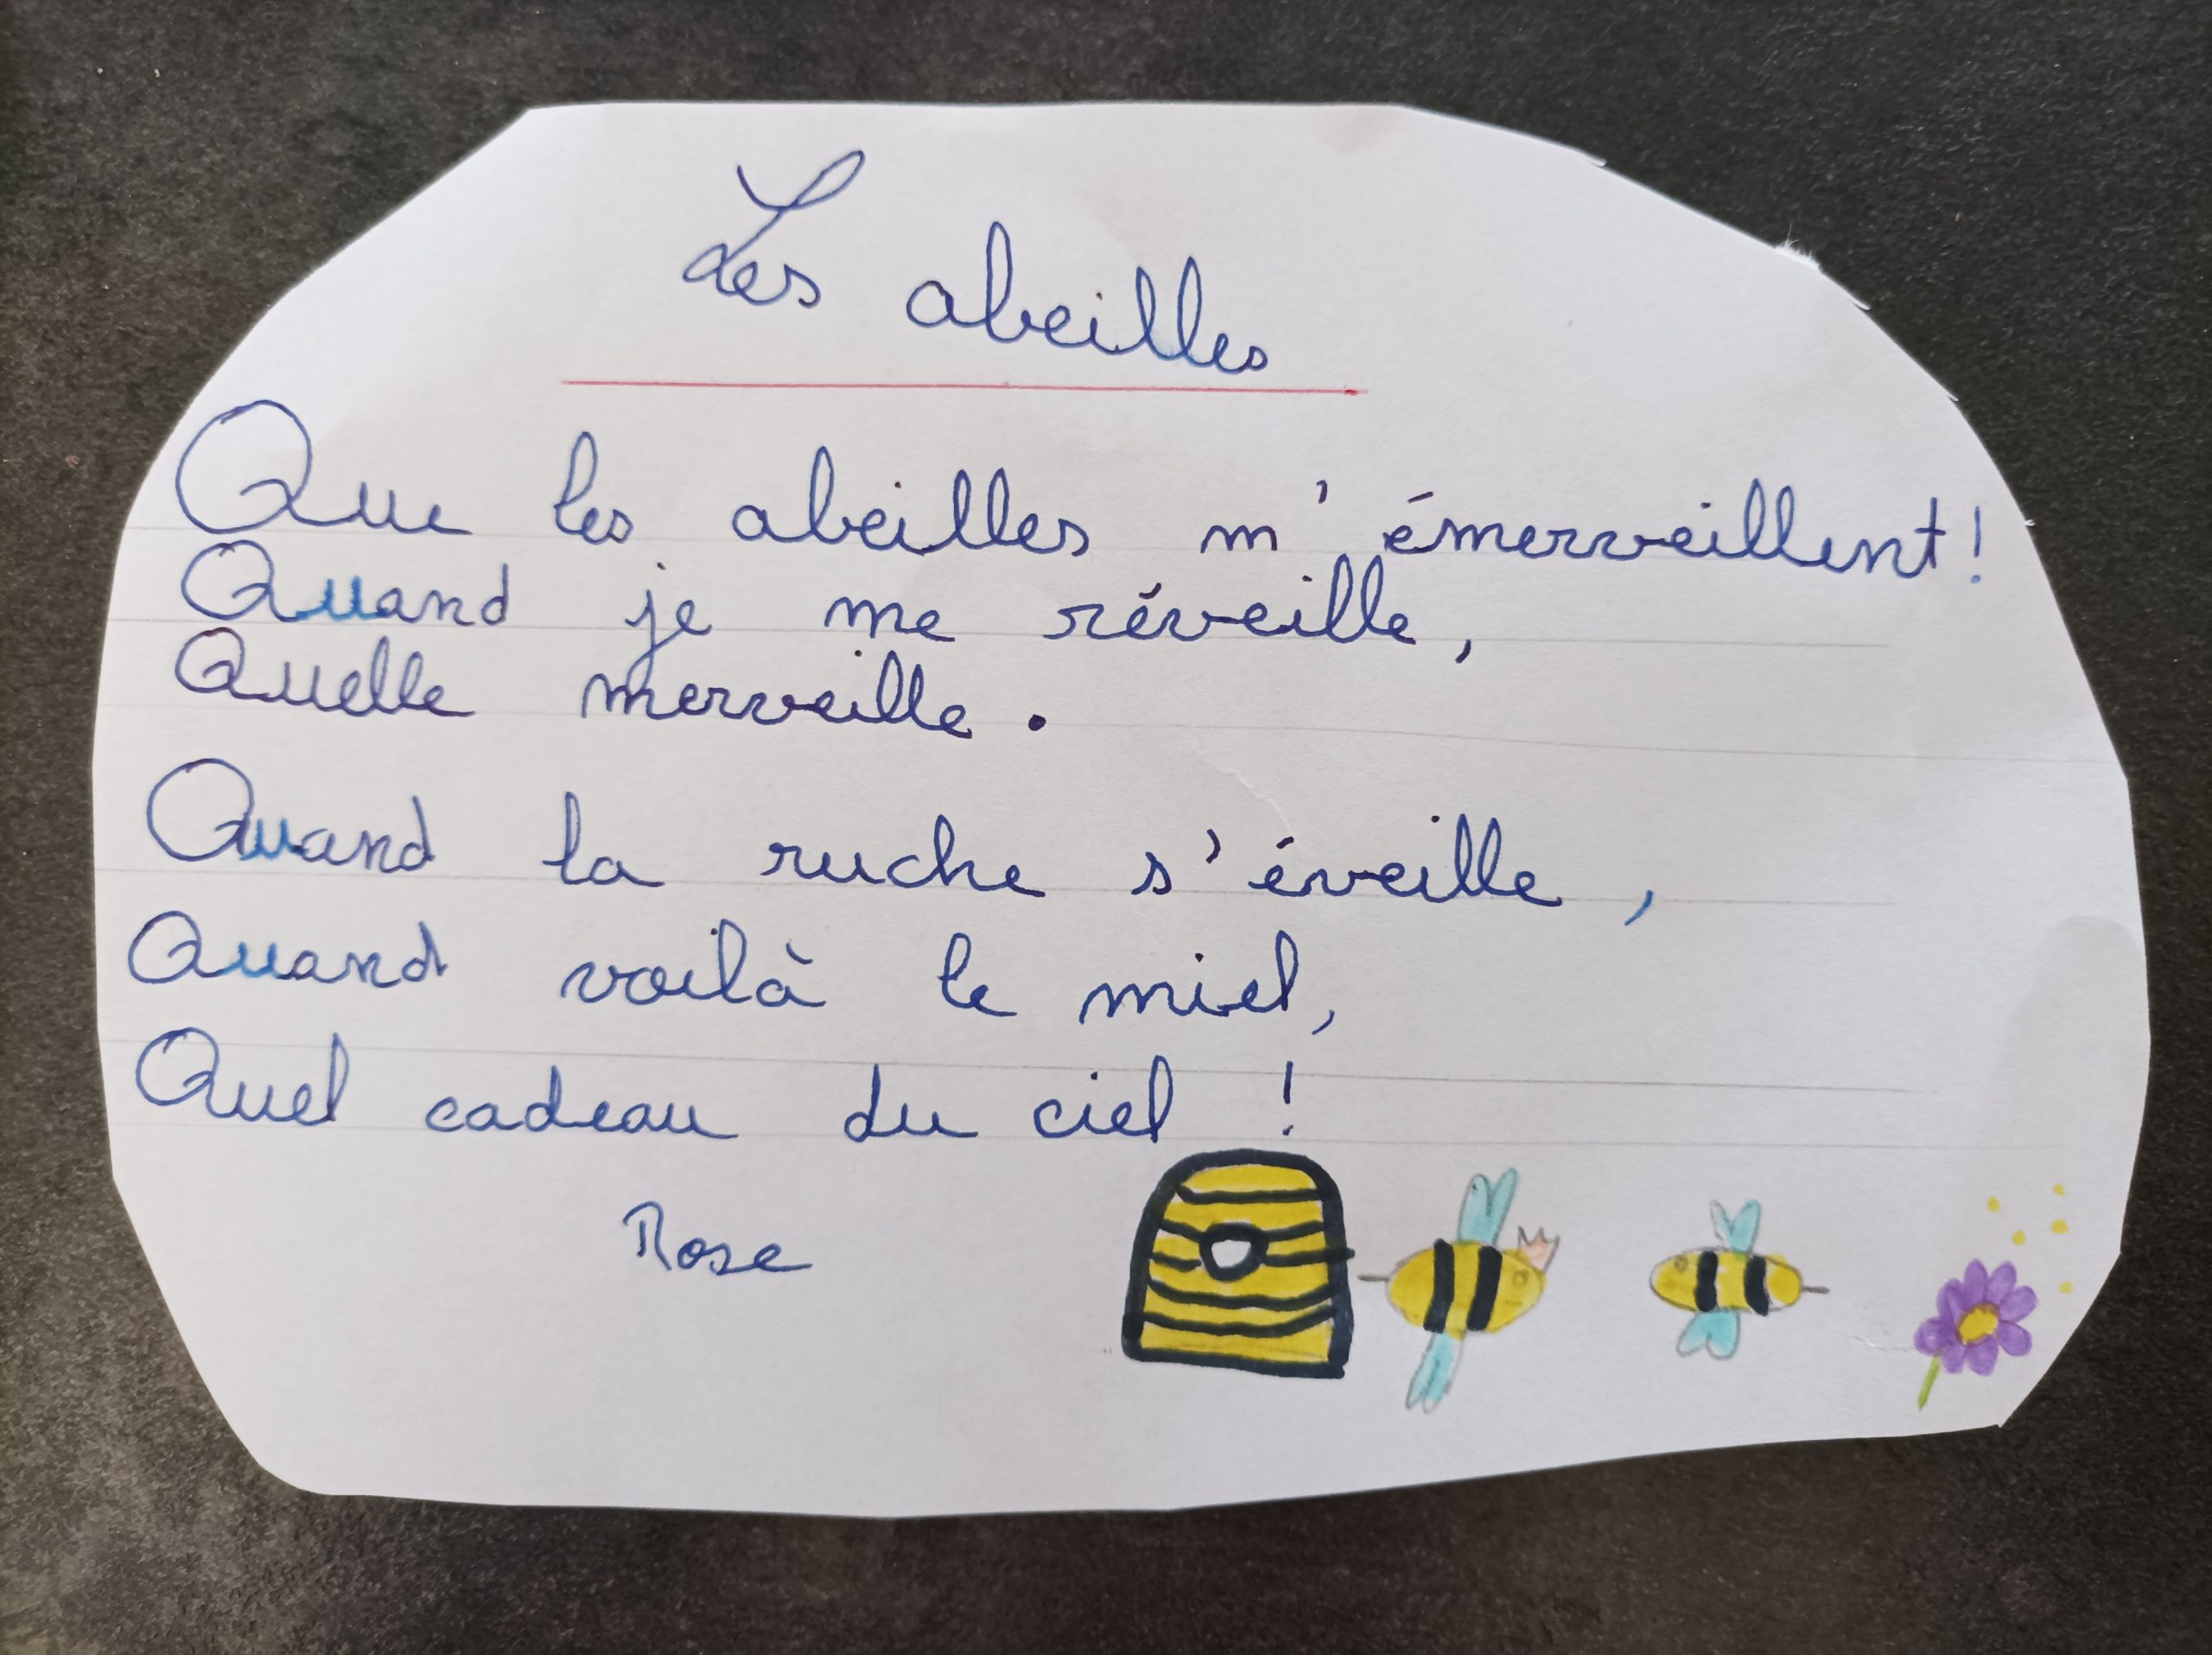 Les abeilles
Que les abeilles m'émerveillent!
Quand je me réveille,
Quelle merveille.
Quand la ruche s'éveille,
Quand voilà le miel,
Quel cadeau du ciel !
Rose